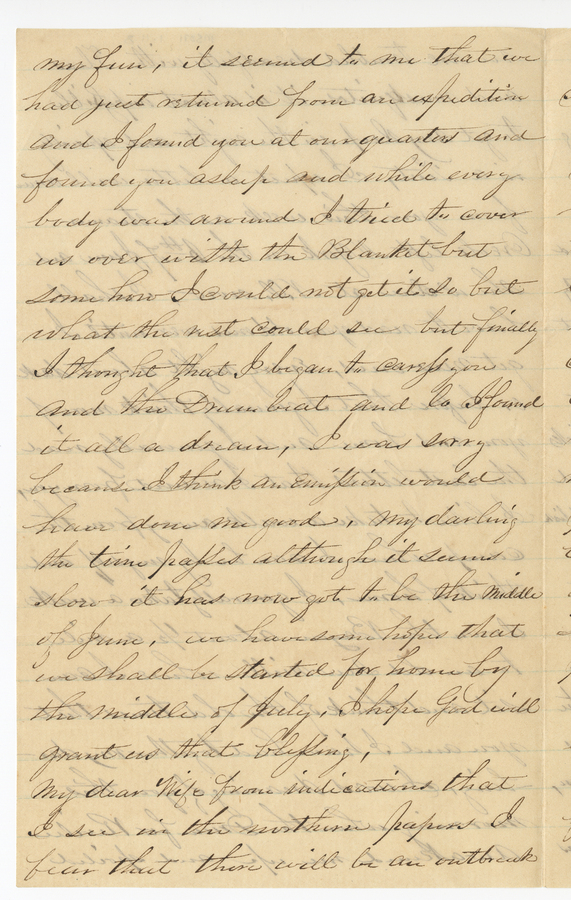 my fun, it seemed to me that we
had just returned from an expedition
and I found you at our quarters and
found you asleep and while every
body was around I tried to cover
us over withe the Blanket but
some how I could not get it so but
what the rest could see but finally
I thought that I began to caress you
and the Drum beat and lo I found
it all a dream, I was sorry
because I think an Emission would
have done me good, my darling
the time passes although it seems
slow it has now got to be the Middle
of June, we have some hopes that
we shall be started for home by
the middle of July, I hope God will
grant us that blessing,
My dear Wife from indications that
I see in the northern papers I
fear that there will be an outbreak